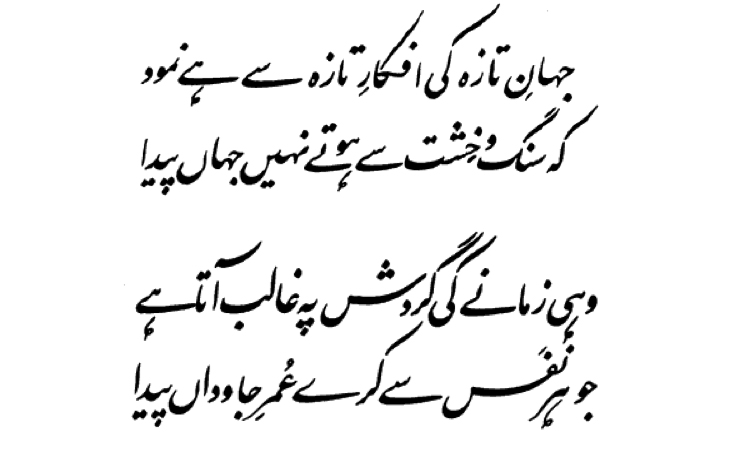 جہانِ تازہ کی افکارِ تازہ سے ہے نمود
کہ سنگ و خِشت سے ہوتے نہیں جہاں پیدا
وہی زمانے کی گردِش پہ غالب آتا ہے
جو ہر نفَس سے کرے عُمرِ جاوداں پیدا